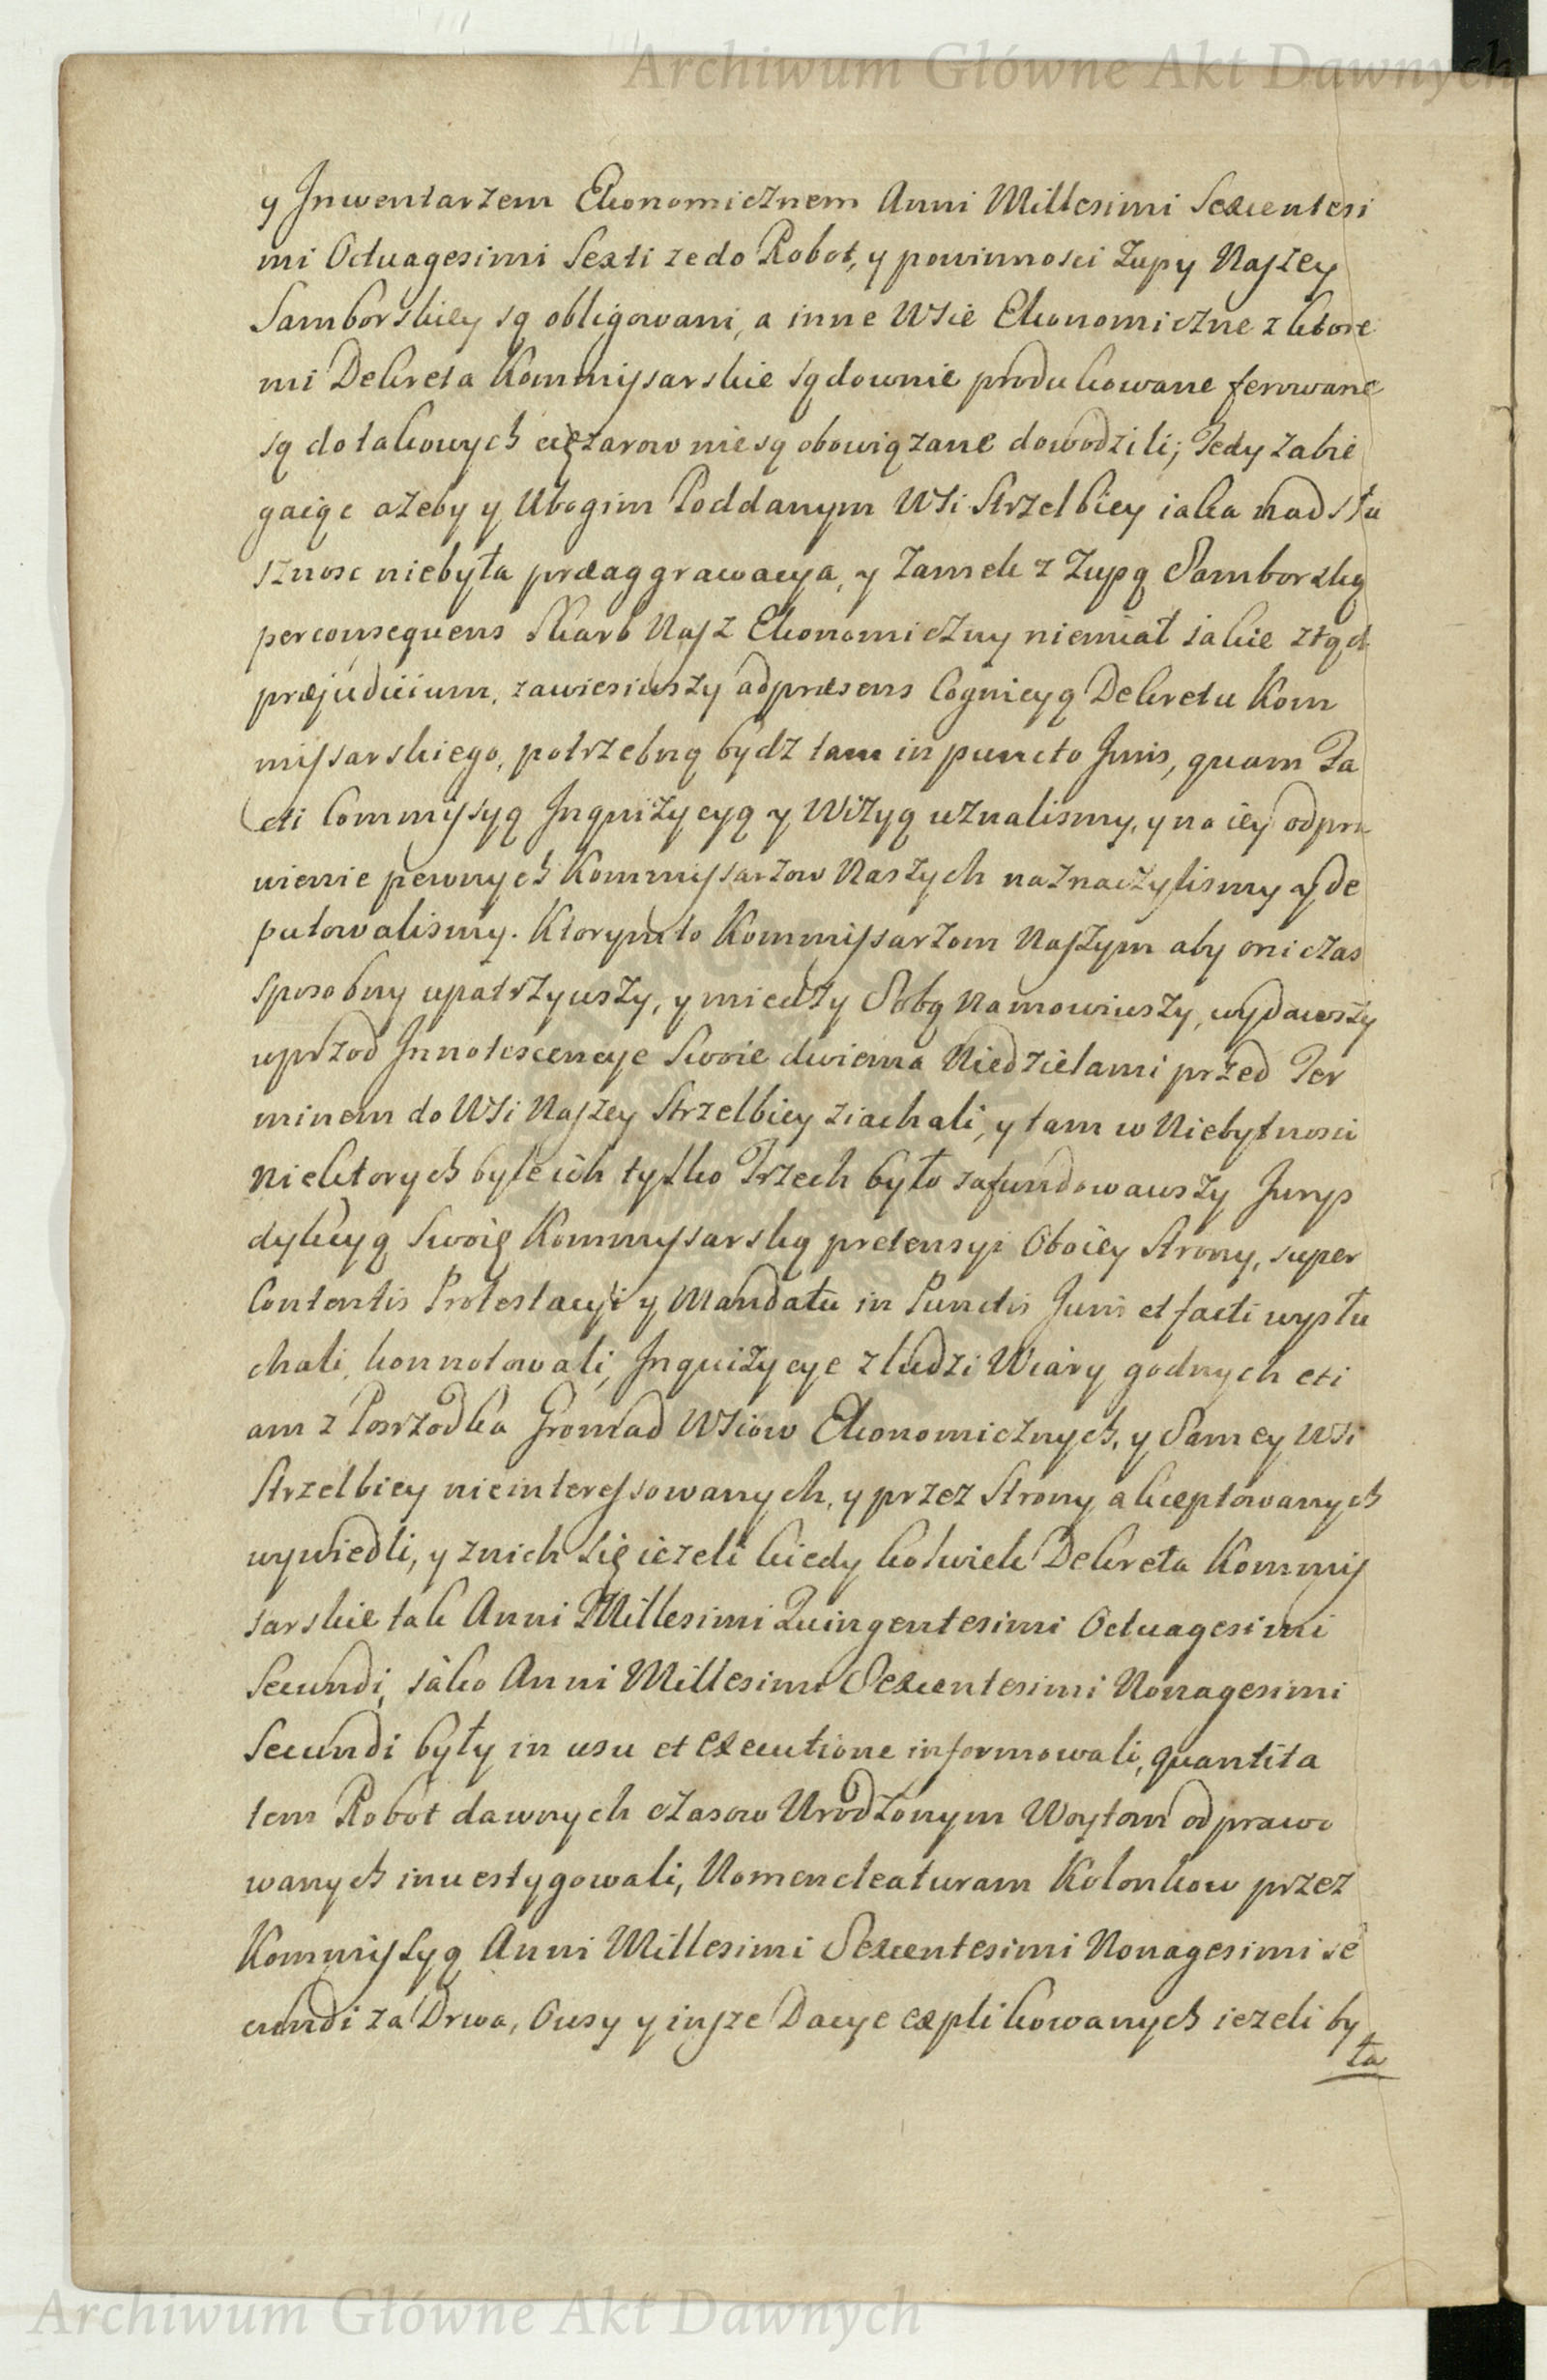 Archiwum Główne Akt Dawnych
y Jnwentarzem Ekonomicznem Anni Millesimi Sexcentesi
mi Octuagesimi Sexti ze do Robot, y powinnosci Zupy Naſzey
Samborskiey są obligowani, a inne Wsie Ekonomiczne z ktore
mi Dekreta Kommiſsarskie sądownie produkowane ferowane
są do takowych cięzarow nie są obowiązane dowodzili; Tedy zabie
gaiąc azeby y Ubogim Poddanym Wsi Strzelbicy iaka nad słu
sznosc niebyła præaggrawacya, y Zamek z Zupą Samborską
per consequens Skarb Naſz Ekonomiczny niemiał iakie ztąd
præjudicium, zawiesiwszy ad præsens Cognicyą Dekretu Kom
miſsarskiego, potrzebną bydz tam in puncto Juris, quam Fa
cti Commiſsyą Jnquizycyą y Wizyą uznalismy, y na iey odpra
wienie pewnych Kommiſsarzow Naszych naznaczylismy y de
putowalismy. Ktorym to Kommiſsarzom Naſzym aby oni czas
sposobny upatrzywszy, y miedzy Sobą namowiwszy, wydawszy
wprzod Jnnotescencye Swoie dwiema Niedzielami przed Ter
minem do Wsi Naſzey Strzelbicy ziachali, y tam w Niebytnosci
niektorych byle ich tylko Trzech było zafundowawszy Jurys
dykcyą Swoię Kommiſsarską pretensyi Oboiey Strony, super
Contentis Protestacyi y Mandatu in Punctis Juris et facti wysłu
chali, konnotowali, Jnquizycye z ludzi Wiary godnych eti
am z Posrzodka Gromad Wsiow Ekonomicznych, y Samey Wsi
Strzelbicy nieintereſsowanych, y przez Strony akceptowanych
wywiedli, y znich się iezeli kiedykolwiek Dekreta Kommiſ
sarskie tak Anni Millesimi Quingentesimi Octuagesimi
Secundi, iako Anni Millesimi Sexcentesimi Nonagesimi
Secundi były in usu et executione informowali, quantita
tem Robot dawnych czasow Urodzonym Woytom odprawo
wanych inwestygowali, Nomencleaturam Kolonkow przez
Kommiſsyą Anni Millesimi Sexcentesimi Nonagesimi se
cundi za Drwa, Owsy y inſze Dacye explikowanych iezeli by
ła
Archiwum Główne Akt Dawnych